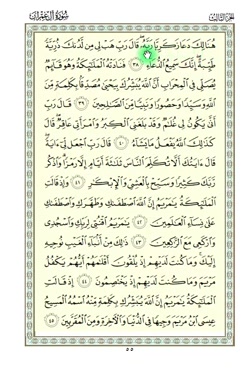 سورة آل عمران الجزء الثالث
هُنَالِكَ دَعَا زَكَرِيَّا رَبَّهُۥ قَالَ رَبِّ هَبْ لِي مِن لَّدُنكَ ذُرِّيَّةً
طَيِّبَةً إِنَّكَ سَمِيعُ ٱلدُّعَآءِ ٣٨ فَنَادَتْهُ ٱلْمَلَٰٓئِكَةُ وَهُوَ قَآئِمٌ
يُصَلِّي فِي ٱلْمِحْرَابِ أَنَّ ٱللَّهَ يُبَشِّرُكَ بِيَحْيَىٰ مُصَدِّقًۢا بِكَلِمَةٍ مِّنَ
ٱللَّهِ وَسَيِّدًا وَحَصُورًا وَنَبِيًّا مِّنَ ٱلصَّٰلِحِينَ ٣٩ قَالَ رَبِّ
أَنَّىٰ يَكُونُ لِي غُلَٰمٌ وَقَدْ بَلَغَنِيَ ٱلْكِبَرُ وَٱمْرَأَتِي عَاقِرٌ قَالَ
كَذَٰلِكَ ٱللَّهُ يَفْعَلُ مَا يَشَآءُ ٤٠ قَالَ رَبِّ ٱجْعَل لِّيٓ ءَايَةً
قَالَ ءَايَتُكَ أَلَّا تُكَلِّمَ ٱلنَّاسَ ثَلَٰثَةَ أَيَّامٍ إِلَّا رَمْزًا وَٱذْكُر
رَّبَّكَ كَثِيرًا وَسَبِّحْ بِٱلْعَشِيِّ وَٱلْإِبْكَٰرِ ٤١ وَإِذْ قَالَتِ
ٱلْمَلَٰٓئِكَةُ يَٰمَرْيَمُ إِنَّ ٱللَّهَ ٱصْطَفَىٰكِ وَطَهَّرَكِ وَٱصْطَفَىٰكِ
عَلَىٰ نِسَآءِ ٱلْعَٰلَمِينَ ٤٢ يَٰمَرْيَمُ ٱقْنُتِي لِرَبِّكِ وَٱسْجُدِي
وَٱرْكَعِي مَعَ ٱلرَّٰكِعِينَ ٤٣ ذَٰلِكَ مِنْ أَنۢبَآءِ ٱلْغَيْبِ نُوحِيهِ
إِلَيْكَ وَمَا كُنتَ لَدَيْهِمْ إِذْ يُلْقُونَ أَقْلَٰمَهُمْ أَيُّهُمْ يَكْفُلُ
مَرْيَمَ وَمَا كُنتَ لَدَيْهِمْ إِذْ يَخْتَصِمُونَ ٤٤ إِذْ قَالَتِ
ٱلْمَلَٰٓئِكَةُ يَٰمَرْيَمُ إِنَّ ٱللَّهَ يُبَشِّرُكِ بِكَلِمَةٍ مِّنْهُ ٱسْمُهُ ٱلْمَسِيحُ
عِيسَى ٱبْنُ مَرْيَمَ وَجِيهًا فِي ٱلدُّنْيَا وَٱلْءَاخِرَةِ وَمِنَ ٱلْمُقَرَّبِينَ ٤٥
٥٥